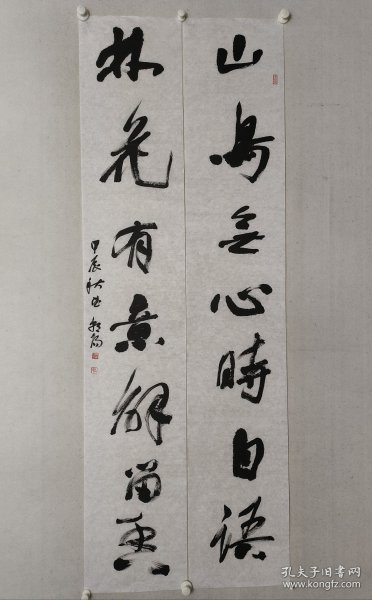 山鳥無心時自語
林花有意解留香
甲辰秋
孔夫子旧书网
www.kongfz.com